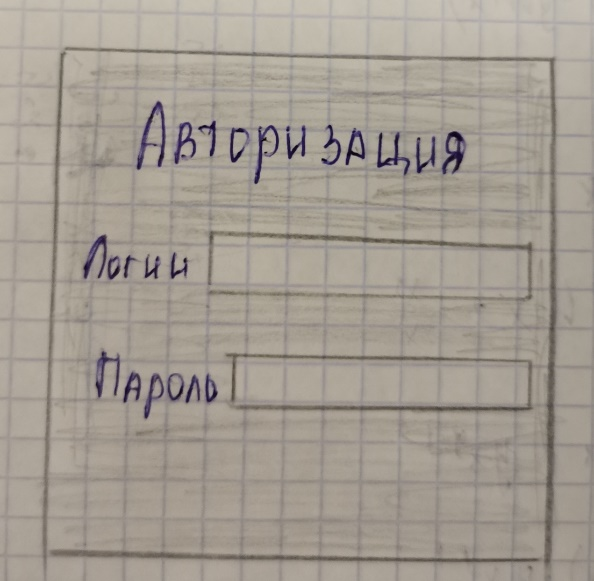 Авторизация
Логин
Пароль